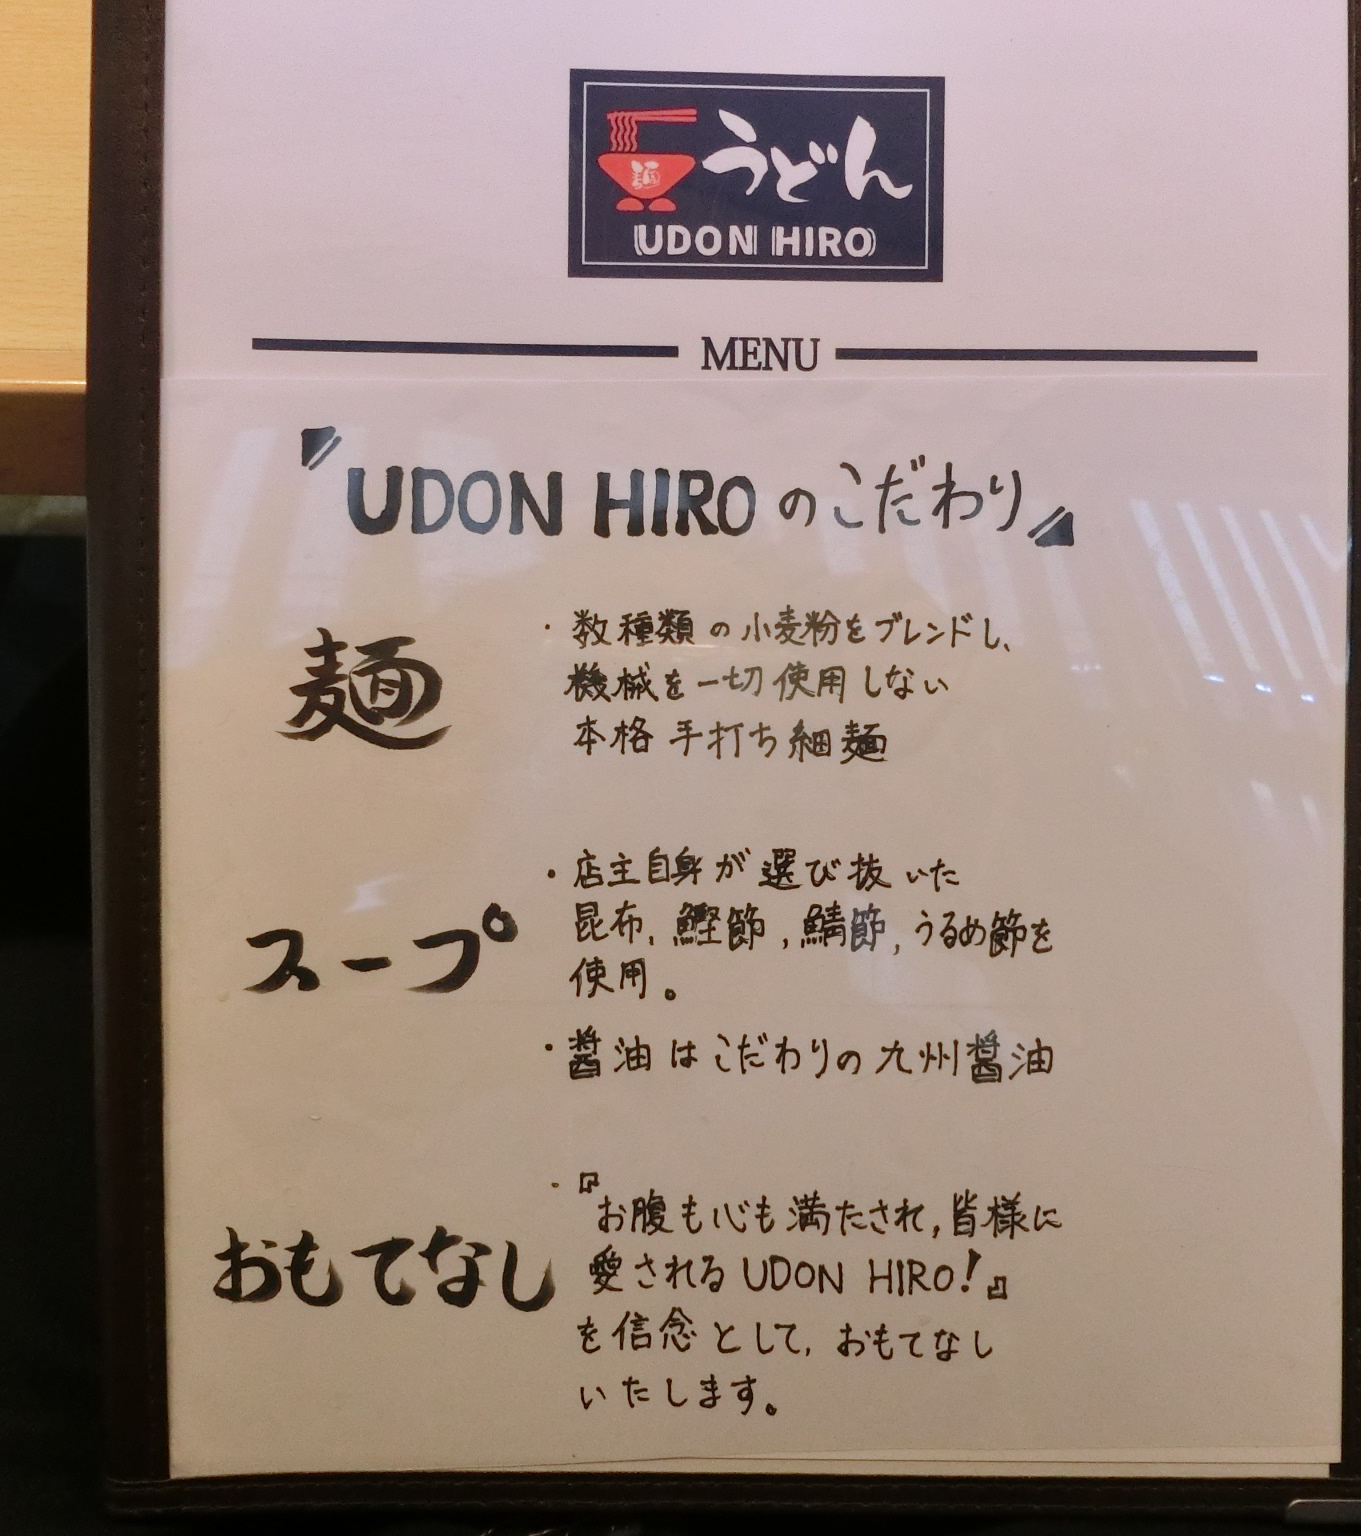 麺
うどん
UDON HIRO
MENU
"UDON HIROのこだわり"
麺
・数種類の小麦粉をブレンドし、
機械を一切使用しない
本格手打ち細麺
スープ
・店主自身が選び抜いた
昆布、鰹節、鯖節、うるめ節を
使用。
・醤油はこだわりの九州醤油
おもてなし
・『お腹も心も満たされ、皆様に
愛されるUDON HIRO!』
を信念として、おもてなし
いたします。